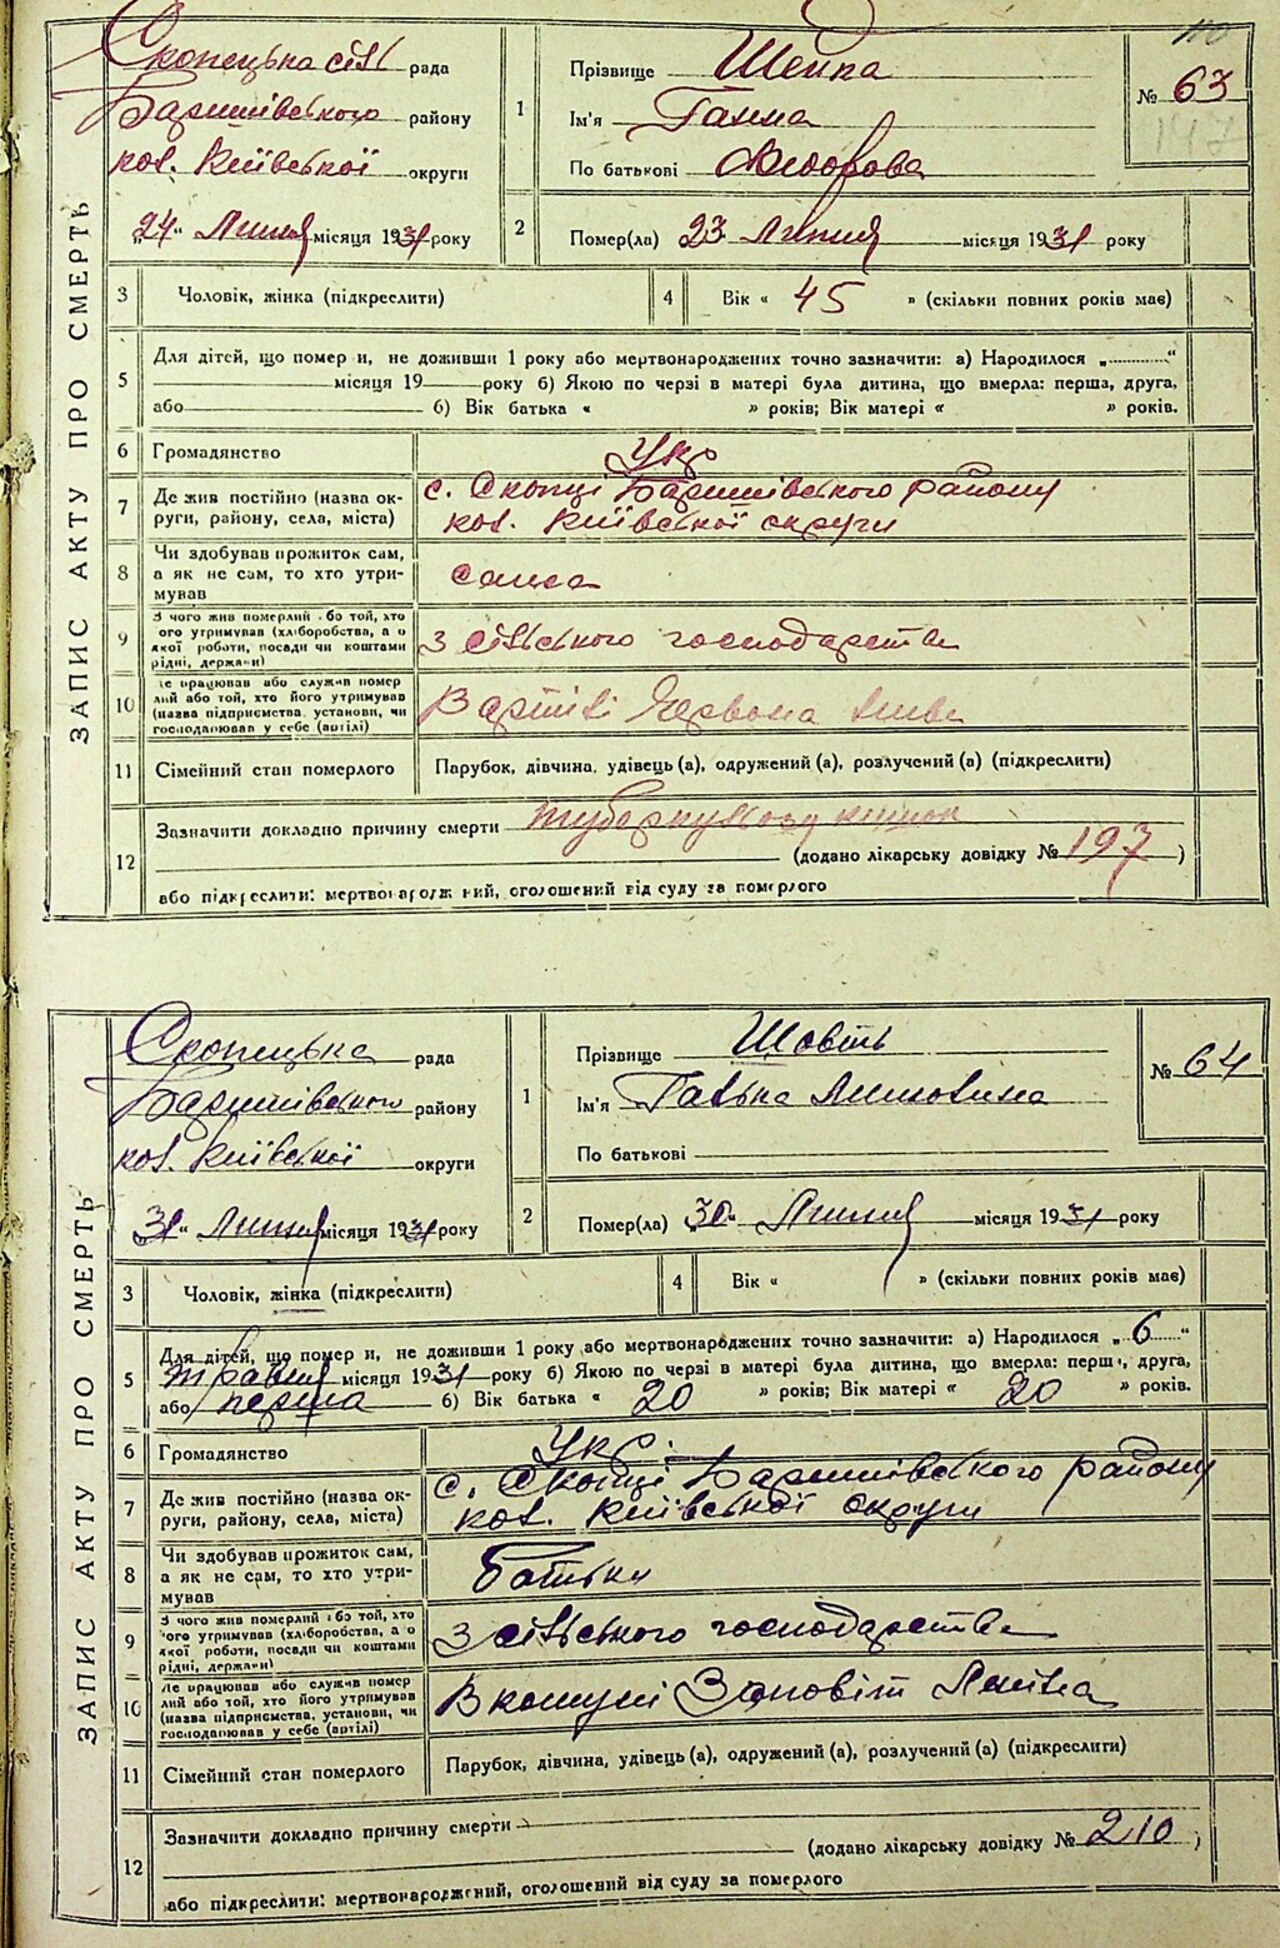 110
Скопецька сіль рада
Баришівського району
кол. Київської округи
„24“ Липня місяця 1931 року
1 Прізвище Шейка
Ім'я Ганна
По батькові Федорова
№ 63
147
2 Помер(ла) 23 Липня місяця 1931 року
ЗАПИС АКТУ ПРО СМЕРТЬ
3 Чоловік, жінка (підкреслити) 4 Вік « 45 » (скільки повних років має)
5 Для дітей, що помер и, не доживши 1 року або мертвонароджених точно зазначити: а) Народилося „ “
місяця 19 року б) Якою по черзі в матері була дитина, що вмерла: перша, друга,
або б) Вік батька « » років; Вік матері « » років.
6 Громадянство Укр
7 Де жив постійно (назва ок-
руги, району, села, міста)
с. Скопці Баришівського району
кол. Київської округи
8 Чи здобував прожиток сам,
а як не сам, то хто утри-
мував
сама
9 З чого жив померлий бо той, хто
ого утримував (хліборобства, а о
якої роботи, посади чи коштами
рідні, держави)
з сільського господарства
10 е працював або служив помер
лий або той, хто його утримував
(назва підприємства, установи, чи
господарював у себе (артілі)
В артілі Червона нива
11 Сімейний стан померлого Парубок, дівчина, удівець (а), одружений (а), розлучений (а) (підкреслити)
12 Зазначити докладно причину смерти туберкульозу кишок
(додано лікарську довідку № 197 )
або підкреслити: мертвонародж ний, оголошений від суду за померлого
Скопецька рада
Баришівського району
кол. Київської округи
31“ Липня місяця 1931 року
1 Прізвище Шовть
Ім'я Галька Антоновна
По батькові
№ 64
2 Помер(ла) „30“ Липня місяця 1931 року
ЗАПИС АКТУ ПРО СМЕРТЬ
3 Чоловік, жінка (підкреслити) 4 Вік « » (скільки повних років має)
5 Для дітей, що помер и, не доживши 1 року або мертвонароджених точно зазначити: а) Народилося „ 6 “
травня місяця 1931 року б) Якою по черзі в матері була дитина, що вмерла: перш , друга,
або перша б) Вік батька « 20 » років; Вік матері « 20 » років.
6 Громадянство Укр.
7 Де жив постійно (назва ок-
руги, району, села, міста)
с. Скопці Баришівського району
кол. Київської округи
8 Чи здобував прожиток сам,
а як не сам, то хто утри-
мував
батьки
9 З чого жив померлий бо той, хто
ого утримував (хліборобства, а о
якої роботи, посади чи коштами
рідні, держави)
З сільського господарства
10 Де працював або служив помер
лий або той, хто його утримував
(назва підприємства, установи, чи
господарював у себе (артілі)
В комуні Заповіт Леніна
11 Сімейний стан померлого Парубок, дівчина, удівець (а), одружений (а), розлучений (а) (підкреслити)
12 Зазначити докладно причину смерти
(додано лікарську довідку № 210 )
або підкреслити: мертвонароджений, оголошений від суду за померлого